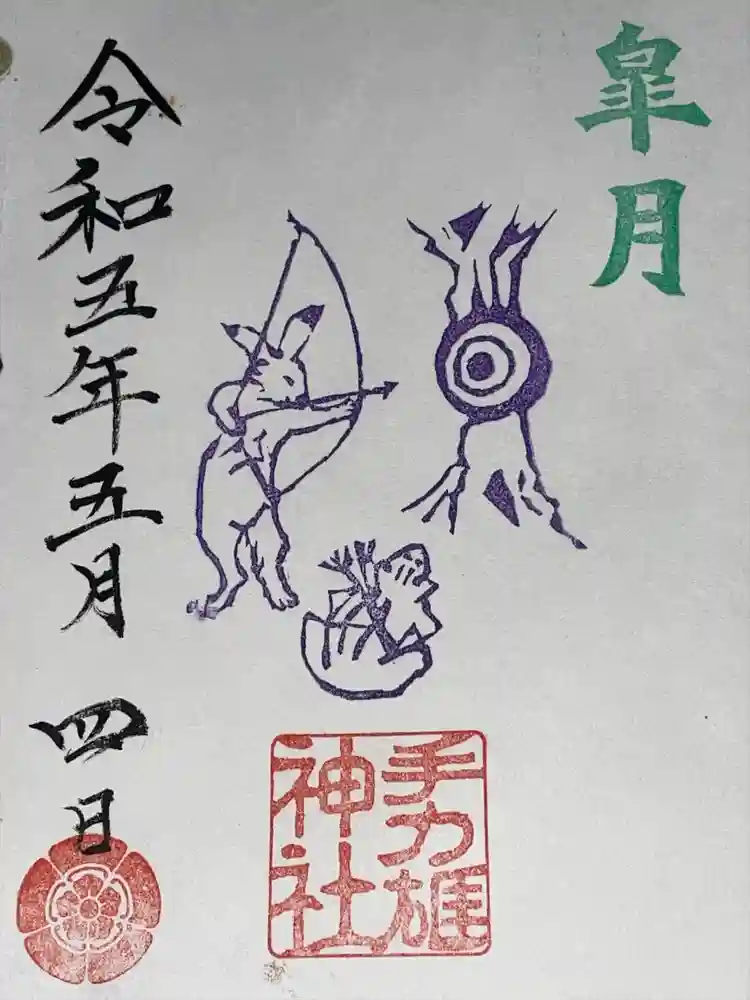 皐月
手力雄
神社
令和五年五月四日